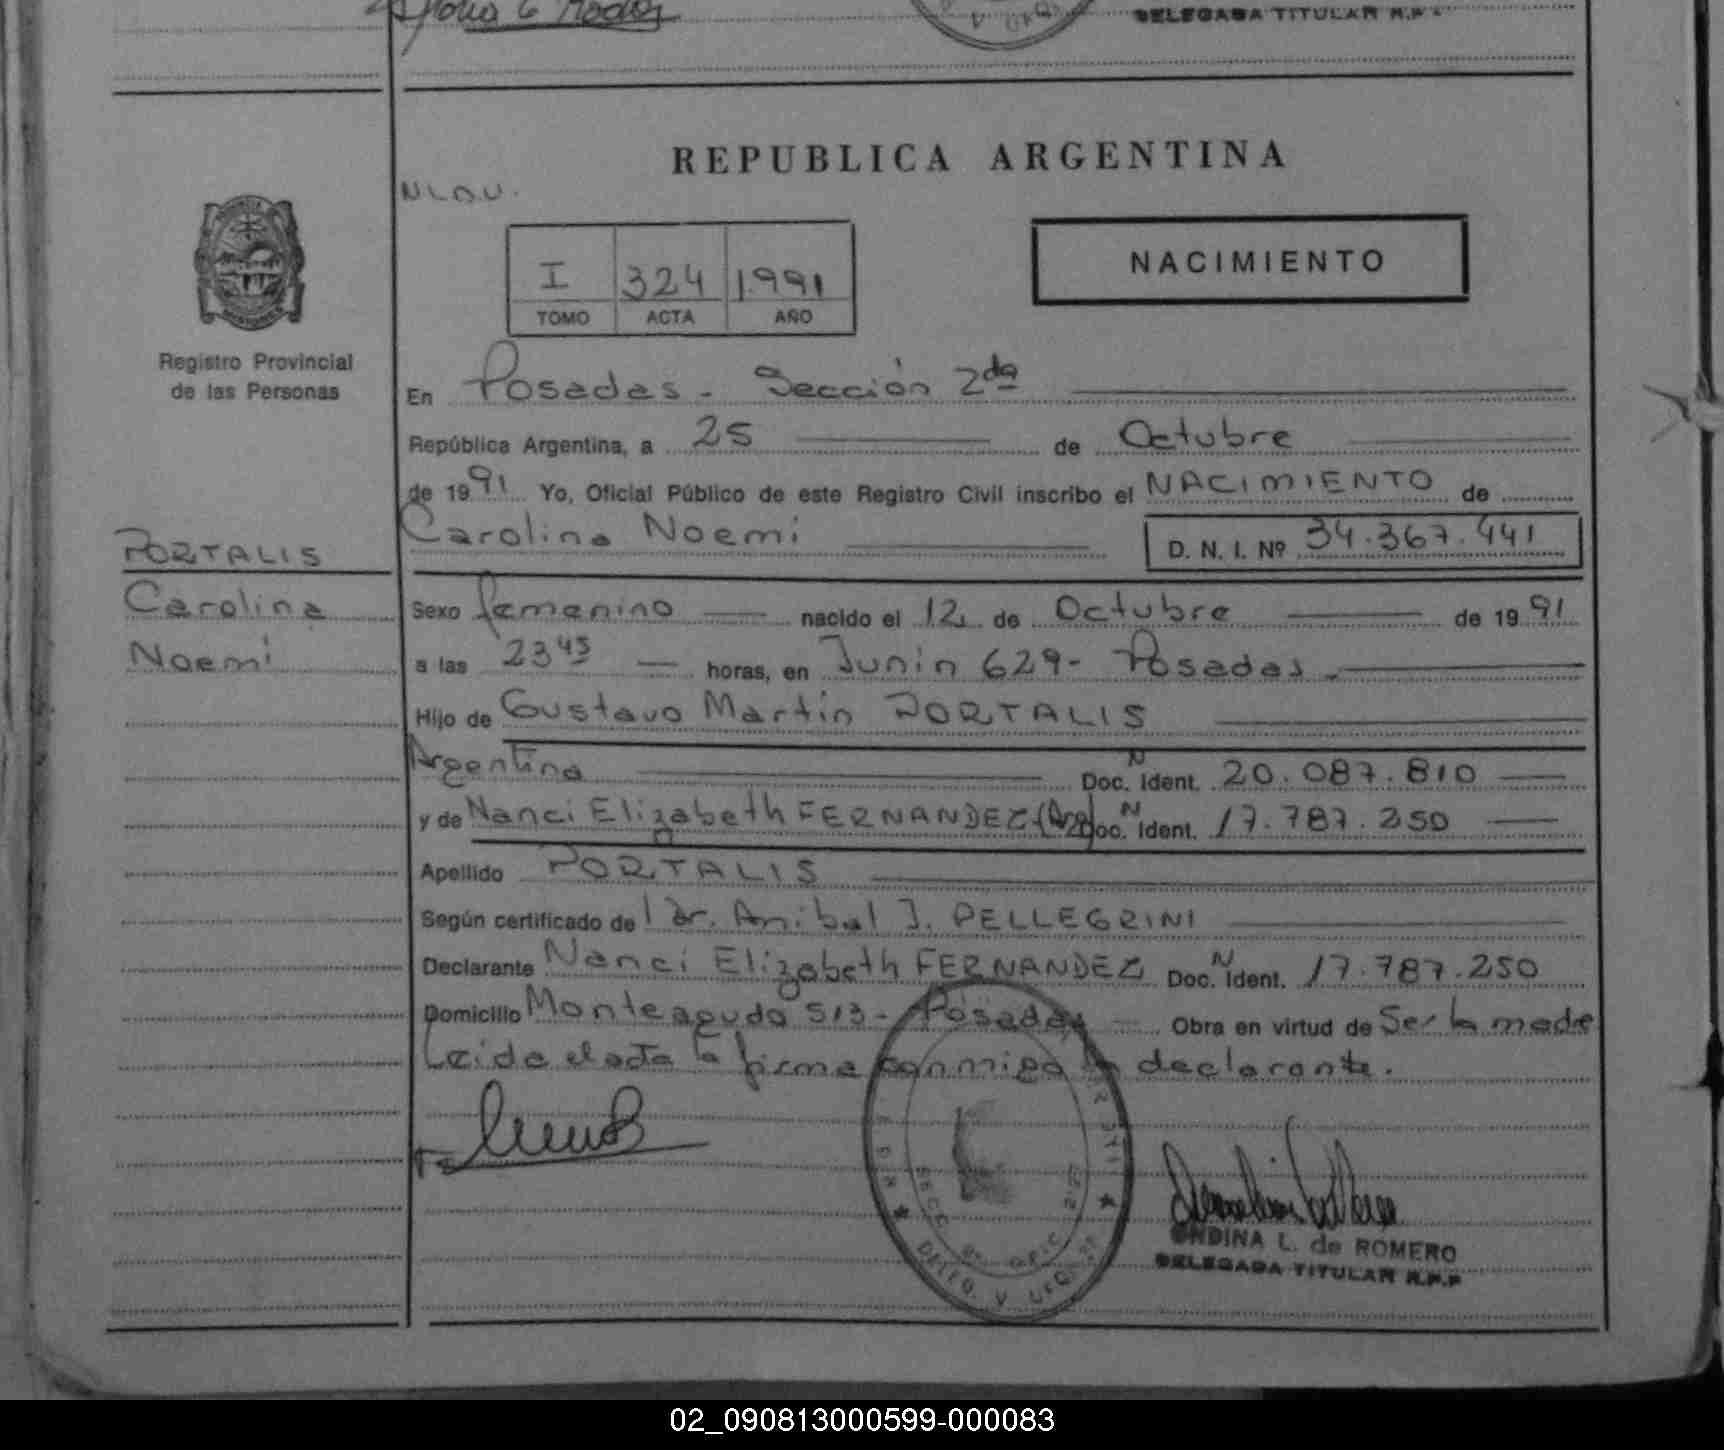 DELEGADA TITULAR R.P.
REPUBLICA ARGENTINA
N.L.D.U.
I 324 1.991
TOMO ACTA AÑO
NACIMIENTO
Registro Provincial
de las Personas
En Posadas - Sección 2da
República Argentina, a 25 de Octubre
de 1991 Yo, Oficial Público de este Registro Civil inscribo el NACIMIENTO de
Carolina Noemi D. N. I. Nº 34.367.441
PORTALIS
Carolina
Noemi
Sexo femenino nacido el 12 de Octubre de 1991
a las 23 45 horas, en Junin 629 - Posadas.
Hijo de Gustavo Martin PORTALIS
Argentino Doc. N Ident. 20.087.810
y de Nanci Elizabeth FERNANDEZ (Arg) Doc. N Ident. 17.787.250
Apellido PORTALIS
Según certificado de l Dr. Anibal J. PELLEGRINI
Declarante Nanci Elizabeth FERNANDEZ Doc. N Ident. 17.787.250
Domicilio Monteagudo 513 - Posadas Obra en virtud de Ser la madre
Leida el acta la firma conmigo la declarante.
ONDINA L. de ROMERO
DELEGADA TITULAR R.P.P
02_090813000599-000083